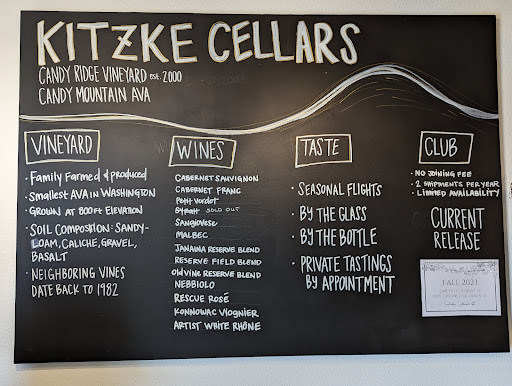 KITZKE CELLARS
CANDY RIDGE VINEYARD est. 2000
CANDY MOUNTAIN AVA
VINEYARD
· Family Farmed & produced
· Smallest AVA in WASHINGTON
· GROWN AT 800ft ELEVATION
· SOIL COMPOSITION: SANDY-
LOAM, CALICHE, GRAVEL,
BASALT
· NEIGHBORING VINES
DATE BACK TO 1982
WINES
CABERNET SAUVIGNON
CABERNET FRANC
Petit Verdot
Syrah SOLD OUT
Sangiovese
MALBEC
JANAWA RESERVE BLEND
RESERVE FIELD BLEND
RESERVE BLEND
NEBBIOLO
RESCUE ROSÉ
KONNOWAC VIOGNIER
ARTIST WHITE RHÔNE
TASTE
· SEASONAL FLIGHTS
· BY THE GLASS
· BY THE BOTTLE
· PRIVATE TASTINGS
BY APPOINTMENT
CLUB
· NO JOINING FEE
· 2 SHIPMENTS PER YEAR
· LIMITED AVAILABILITY
CURRENT
RELEASE
FALL 2023